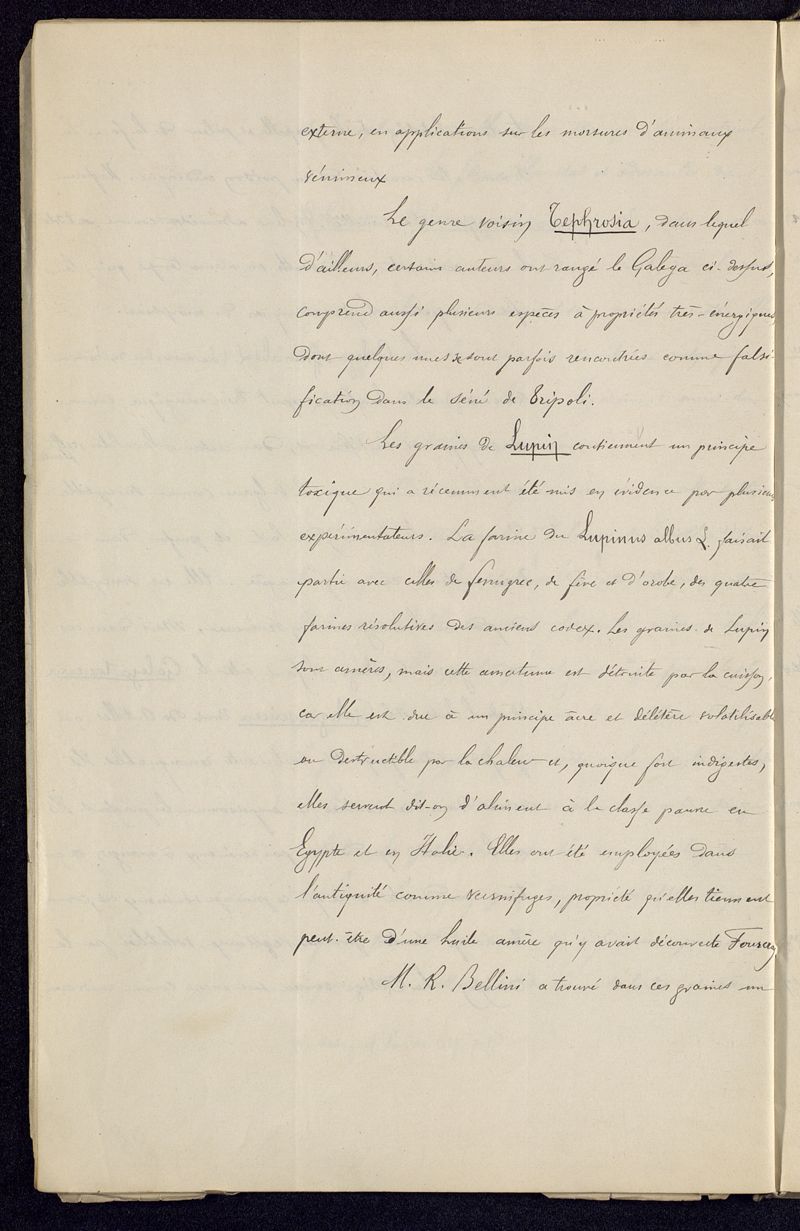 externe, en applications sur les morsures d'animaux
vénimeux
Le genre voisin Tephrosia, dans lequel
d'ailleurs, certains auteurs ont rangé le Galega ci-dessus,
comprend aussi plusieurs espèces à propriétés très-énergiques
dont quelques unes sont parfois rencontrées comme falsi-
fication dans le séné de Tripoli.
Les graines de Lupin contiennent un principe
toxique qui a récemment été mis en évidence par plusieurs
expérimentateurs. La farine du Lupinus albus L. faisait
partie avec celles de fenugrec, de fève et d'orobe, des quatre
farines résolutives des anciens codex. Les graines de Lupin
sont amères, mais cette amertume est détruite par la cuisson,
car elle est due à un principe âcre et délétère volatilisable
ou destructible par la chaleur et, quoique fort indigestes,
elles servent dit-on d'aliment à la classe pauvre en
Egypte et en Italie. Elles ont été employées dans
l'antiquité comme vermifuges, propriété qu'elles tiennent
peut-être d'une huile amère qu'y avait découverte Fourcroy
M. R. Bellini a trouvé dans ces graines un